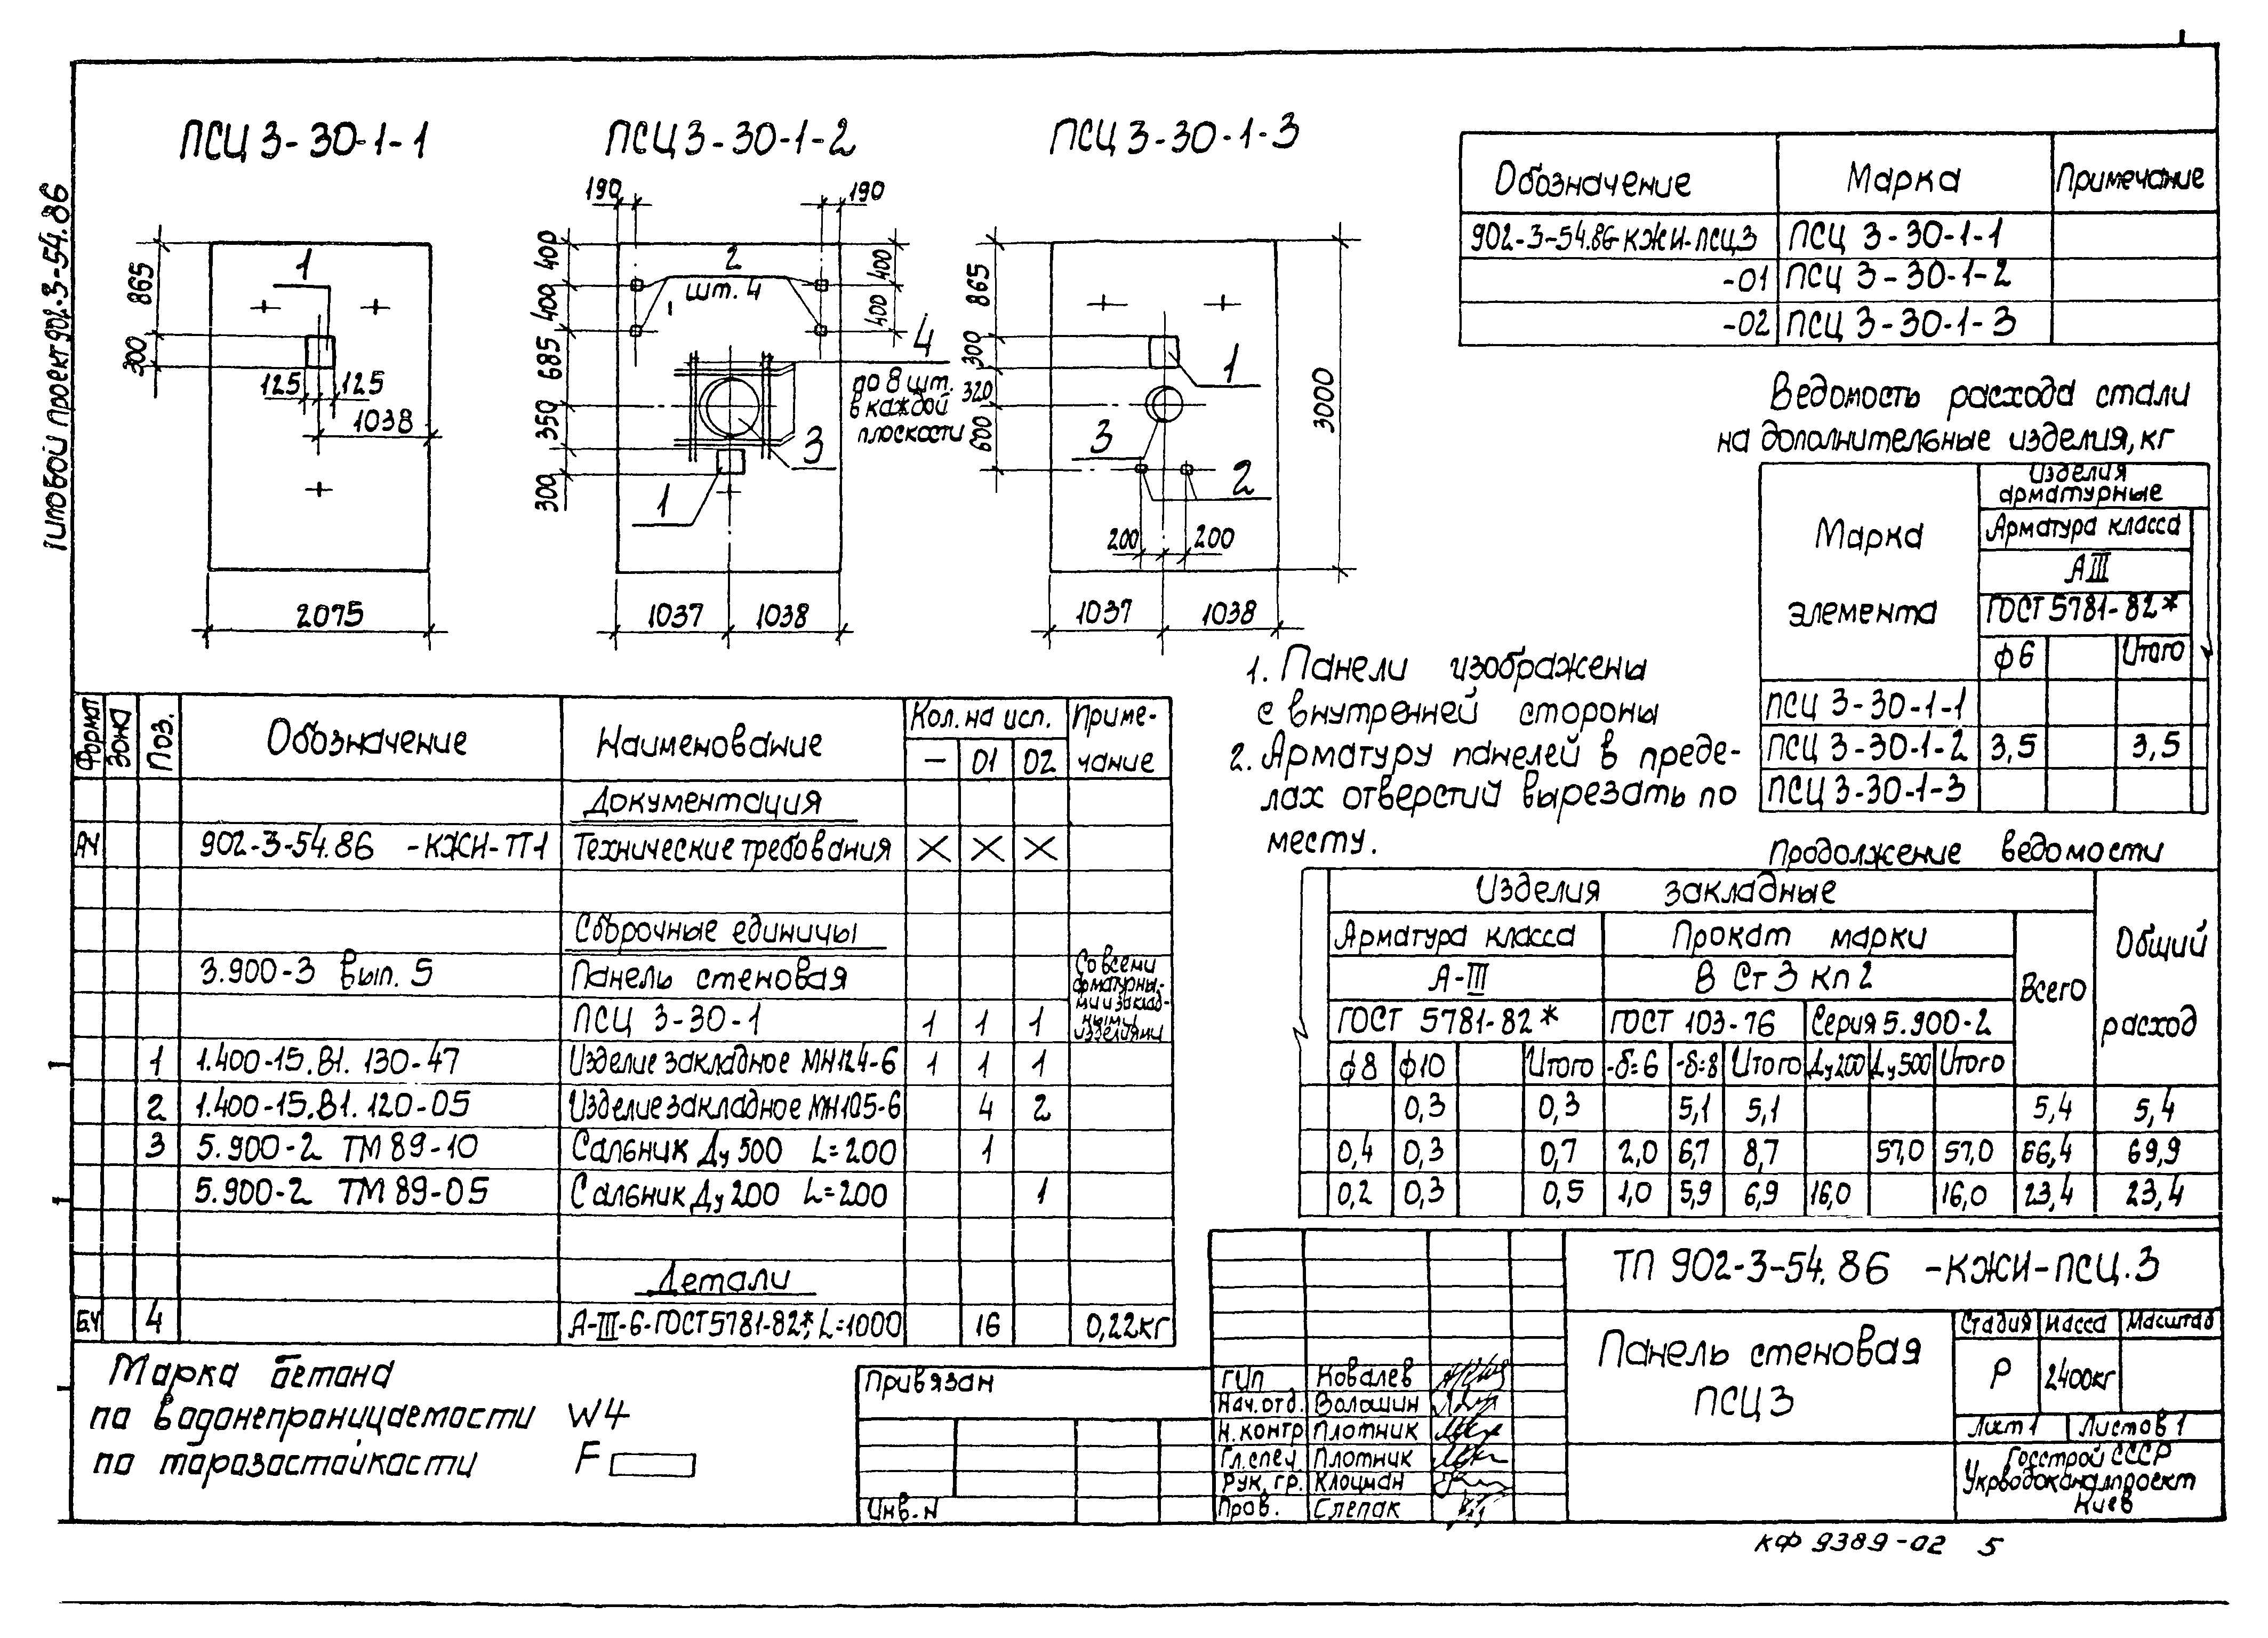 Типовой проект 902-3-54.86
ПСЦ 3-30-1-1
865
300
1
125
125
1038
2075
ПСЦ 3-30-1-2
190
190
400
400
685
350
300
2
шт. 4
400
400
4
до 8 шт.
в каждой
плоскости
3
1
1037
1038
ПСЦ 3-30-1-3
865
300
320
600
1
3
2
200
200
3000
1037
1038
Обозначение Марка Примечание
902-3-54.86-КЖИ-ПСЦ3 ПСЦ 3-30-1-1
-01 ПСЦ 3-30-1-2
-02 ПСЦ 3-30-1-3
Ведомость расхода стали
на дополнительные изделия, кг
Марка
элемента
Изделия
арматурные
Арматура класса
АIII
ГОСТ 5781-82*
ф6 Итого
ПСЦ 3-30-1-1
ПСЦ 3-30-1-2 3,5 3,5
ПСЦ 3-30-1-3
1. Панели изображены
с внутренней стороны
2. Арматуру панелей в преде-
лах отверстий вырезать по
месту.
Продолжение ведомости
Изделия закладные
Общий
расход
Арматура класса Прокат марки Всего
А-III В Ст 3 кп 2
ГОСТ 5781-82* ГОСТ 103-76 Серия 5.900-2
ф8 ф10 Итого -δ=6 -δ=8 Итого Ду200 Ду500 Итого
0,3 0,3 5,1 5,1 5,4 5,4
0,4 0,3 0,7 2,0 6,7 8,7 57,0 57,0 66,4 69,9
0,2 0,3 0,5 1,0 5,9 6,9 16,0 16,0 23,4 23,4
Формат Зона Поз. Обозначение Наименование Кол. на исп. Приме-
чание
— 01 02
Документация
А4 902-3-54.86 -КЖИ-ТТ1 Технические требования
Сборочные единицы
3.900-3 вып. 5 Панель стеновая
ПСЦ 3-30-1 1 1 1
Со всеми
арматурны-
ми и заклад-
ными
изделиями
1 1.400-15.В1. 130-47 Изделие закладное МН124-6 1 1 1
2 1.400-15.В1. 120-05 Изделие закладное МН105-6 4 2
3 5.900-2 ТМ 89-10 Сальник Ду 500 L=200 1
5.900-2 ТМ 89-05 Сальник Ду 200 L=200 1
Детали
Б.Ч 4 А-III-6-ГОСТ 5781-82*, L=1000 16 0,22кг
Марка бетона
по водонепроницаемости W4
по морозостойкости F
Привязан
Инв. N
ГИП Ковалев
Нач. отд. Волошин
Н. контр Плотник
Гл. спец. Плотник
Рук. гр. Клоцман
Пров. Слепак
ТП 902-3-54.86 -КЖИ-ПСЦ.3
Панель стеновая
ПСЦ 3
Стадия Масса Масштаб
Р 2400кг
Лист 1 Листов 1
Госстрой СССР
Укрводоканалпроект
Киев
КФ 9389-02 5